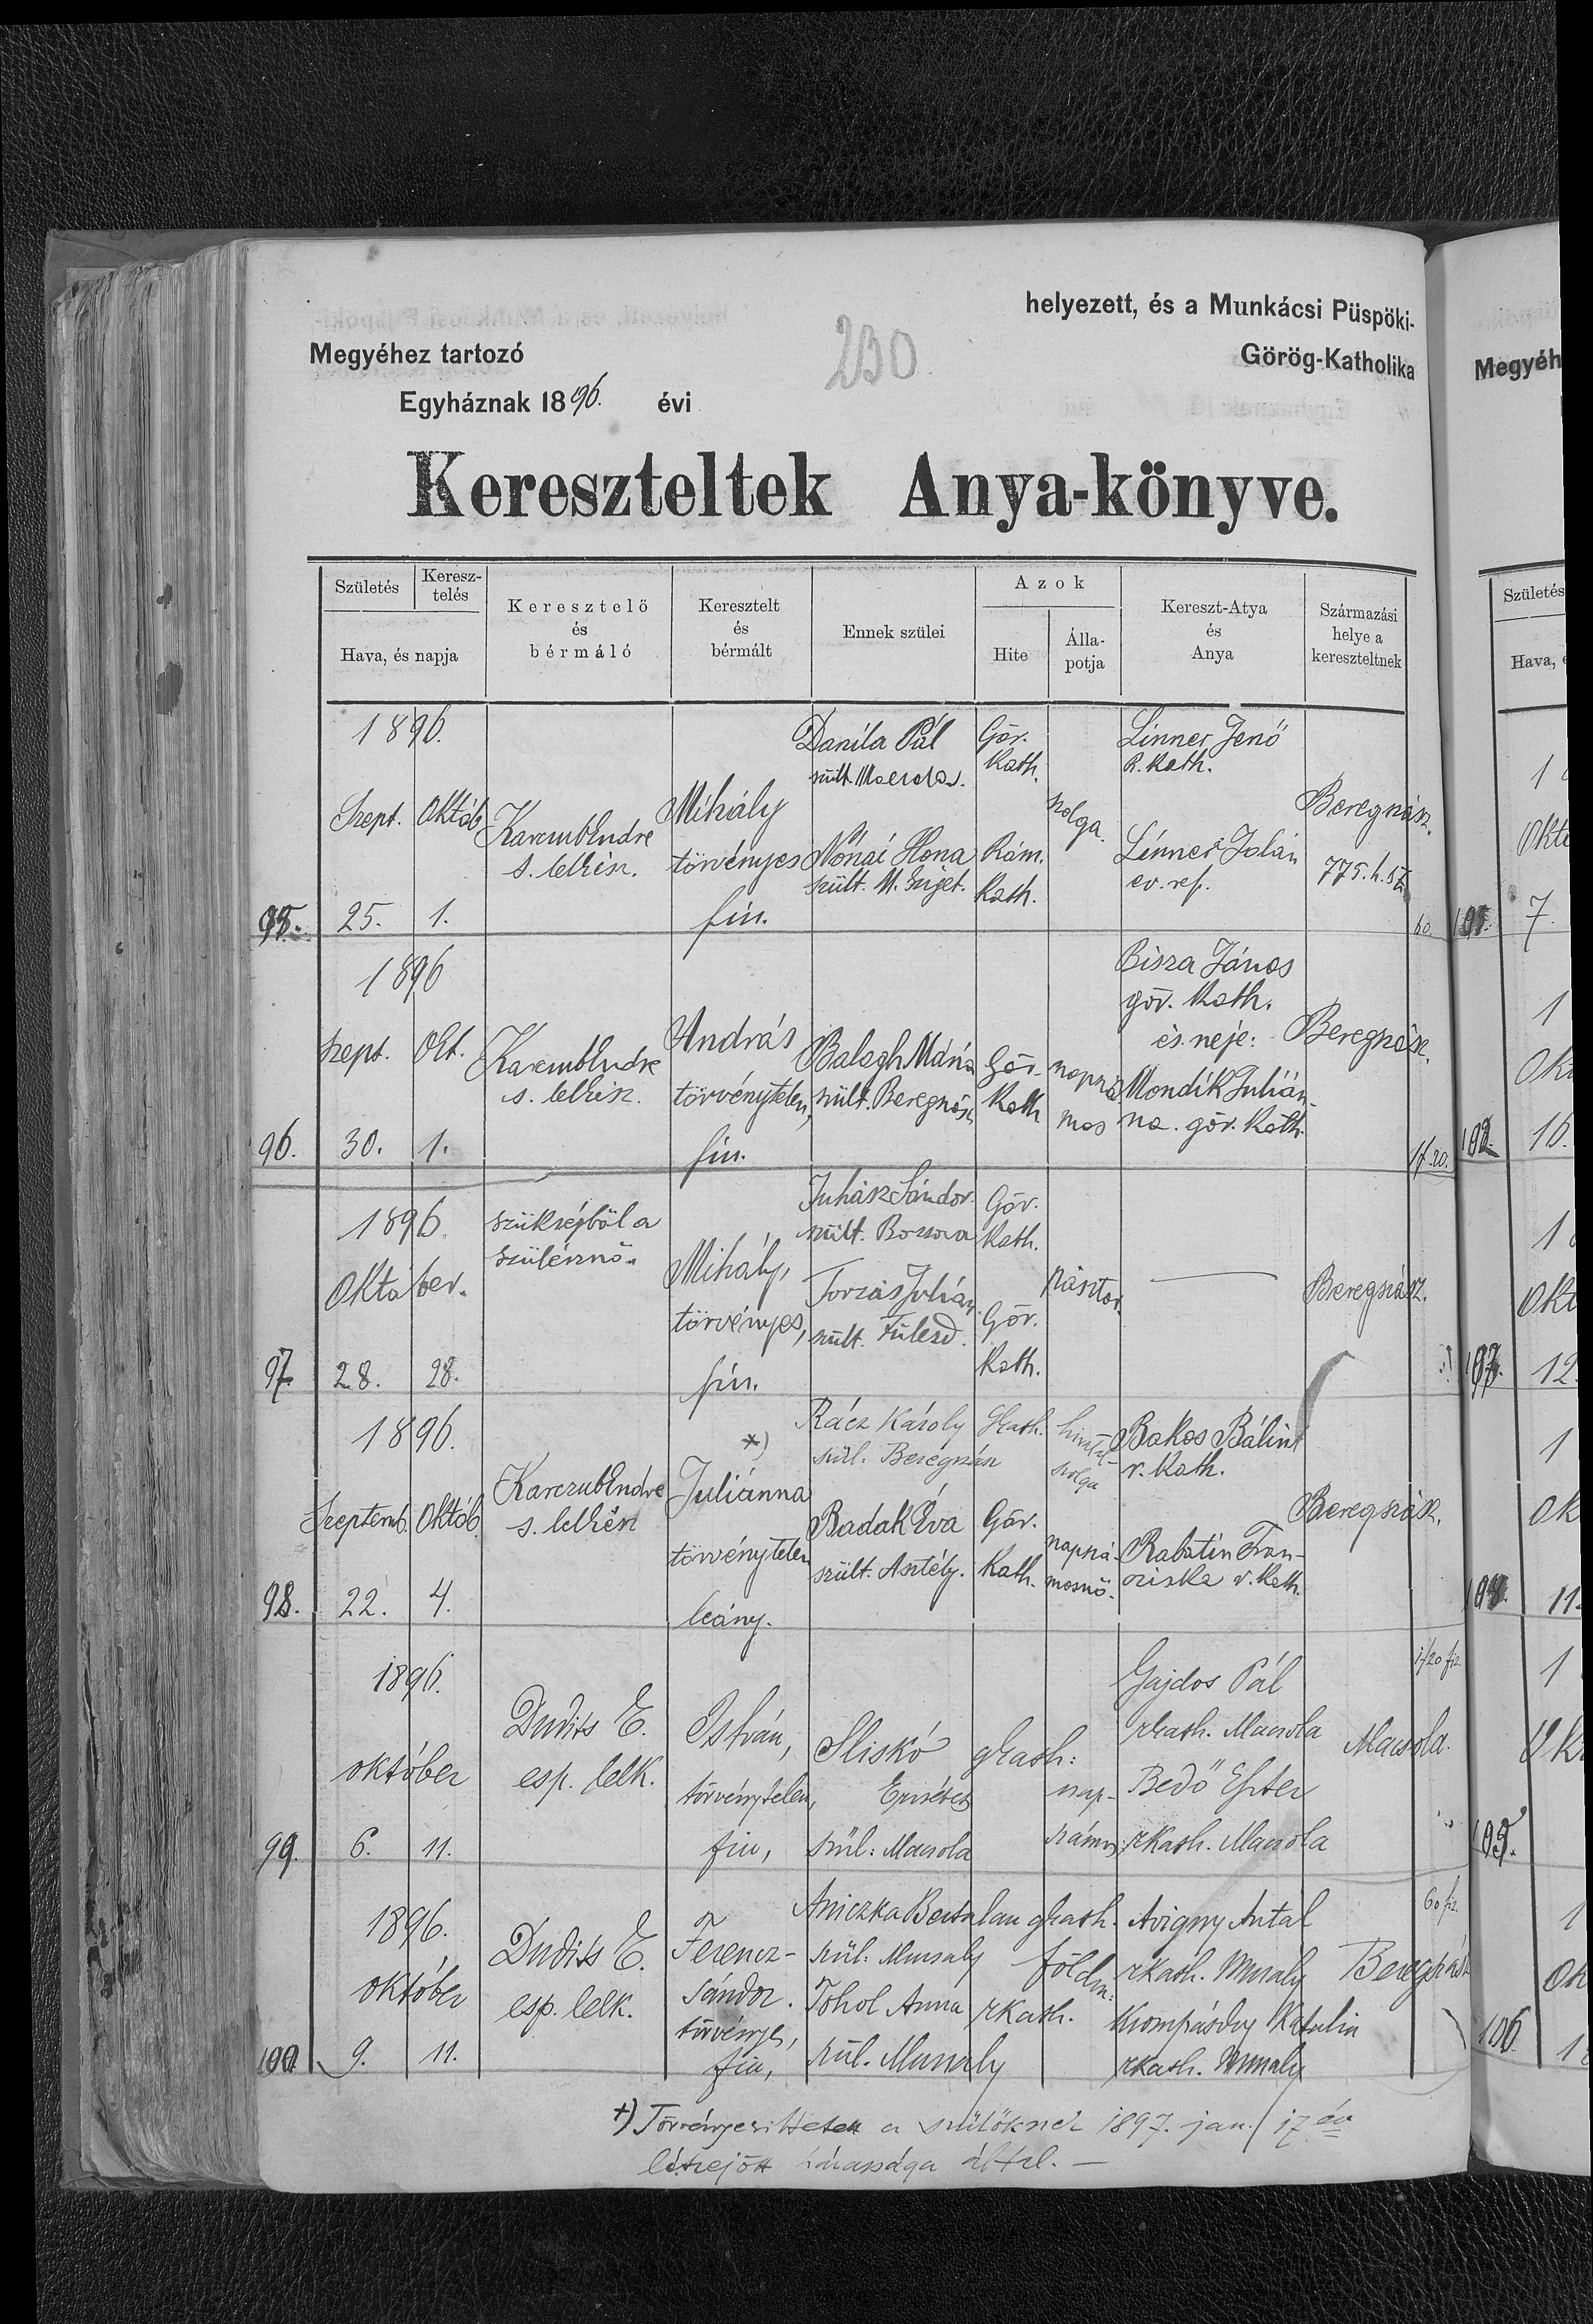 helyezett, és a Munkácsi Püspöki-
Megyéhez tartozó
230
Görög-Katholika
Egyháznak 1896. évi
Kereszteltek Anya-könyve.
Születés
Keresz-
telés
Hava, és napja
Keresztelő
és
bérmáló
Keresztelt
és
bérmált
Ennek szülei
Azok
Hite
Álla-
potja
Kereszt-Atya
és
Anya
Származási
helye a
kereszteltnek
95.
1896.
Szept. Októb
25. 1.
s. lelkész.
Mihály
törvényes
fiú.
Danila Pál
szült.
Nónai Ilona
szült. M. Sziget.
Gör.
Kath.
Róm.
Kath.
szolga.
Linner Jenő
R. Kath.
Linner Jolán
ev. ref.
Beregszász.
775. h. sz.
60.
96.
1896
Szept. Okt.
30. 1.
s. lelkész.
András
törvénytelen,
fiú.
Balogh Mária
szült. Beregszász
Gör.
Kath
napszá
mos
Bisza János
gör. Kath.
és neje:
Mondik Julián-
na. gör. Kath.
Beregszász.
1f.20.
97.
1896.
Október.
28. 28.
szükségből a
szülésznő.
Mihály,
törvényes,
fiú.
Juhász Sándor.
szült. Borsova
Forzás Julián.
szült. Fülesd.
Gör.
Kath.
Gör.
Kath.
pásztor.
Beregszász.
98.
1896.
Septemb. Októb.
22. 4.
s. lelkész
*)
Juliánna
törvénytelen
leány.
Rácz Károly
szül. Beregszász
Badak Éva
szült. Asztély.
Gkath.
Gör.
Kath.
szolga
napszá-
mosnő.
Bakos Bálint
r. Kath.
Rabatin Fran-
cziska r. Kath.
Beregszász.
99.
1896.
október
6. 11.
Dudits E.
esp. lelk.
István,
törvénytelen,
fiu,
Sliskó
Erzsébet
szül: Macsola
gkath:
nap-
számos
Gajdos Pál
rkath. Macsola
Bedő Eszter
rkath. Macsola
Macsola.
1/20 fiz.
100.
1896.
október
9. 11.
Dudits E.
esp. lelk.
Ferencz-
Sándor.
törvényes,
fiu,
Aniczka Bertalan gkath.
szül: Muzsaly
Tohol Anna rkath.
szül. Muzsaly
földm:
Avigny Antal
rkath. Muzsaly
Katalin
rkath. Muzsaly
Beregszász
60 fiz.
+) Törvényesittetett a szülőknek 1897. jan. 17 én
létrejött házassága által. —
Megyéh
Születés
Hava, é
7.
102.
16.
12.
11.
105.
106.